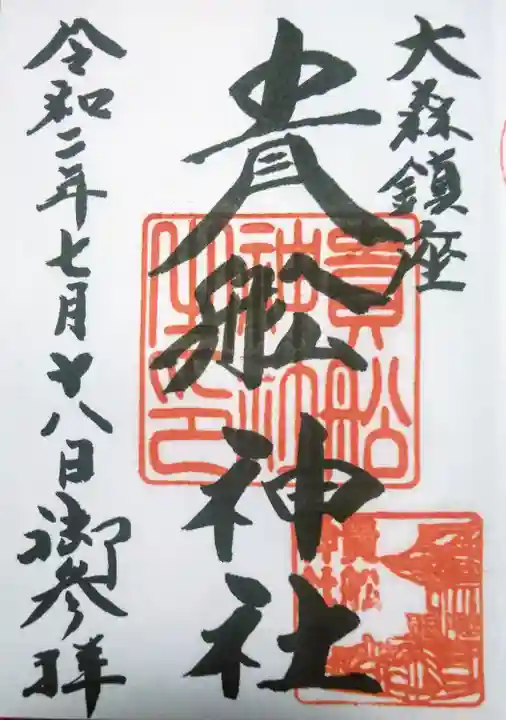 大森鎮座
貴舩神社
令和二年七月十八日御参拝
貴船
神社
之印
貴船
神社